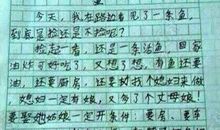 鱼
今天，我在路边看见了一条鱼，
到底是捡还是不捡呢？
捡起一看，还是一条活鱼，回家
油炸可好吃了，又想了想，有鱼还要
油，还要厨房，还要找个媳妇来做
，媳妇一定有娘，又多了个丈母娘！
要娶她姑娘一定开条件：要房、要车